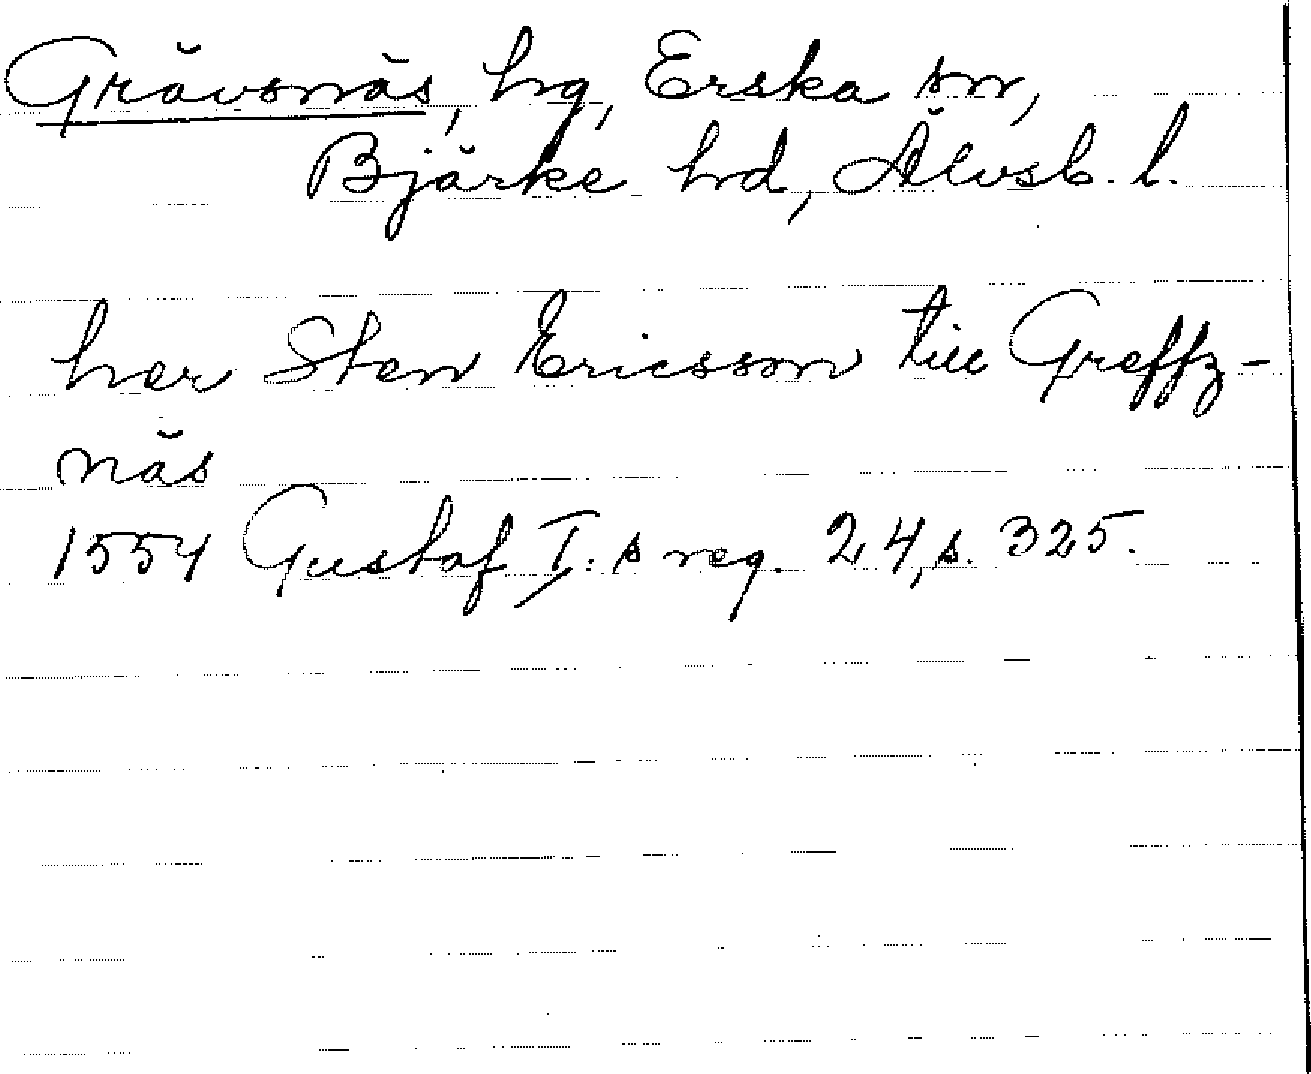 Grävsnäs, hg, Erska sn,
Bjärke hd, Älvsb. l.
her Sten Ericsson till Greffz-
näs
1554 Gustaf I:s reg. 24, s. 325.